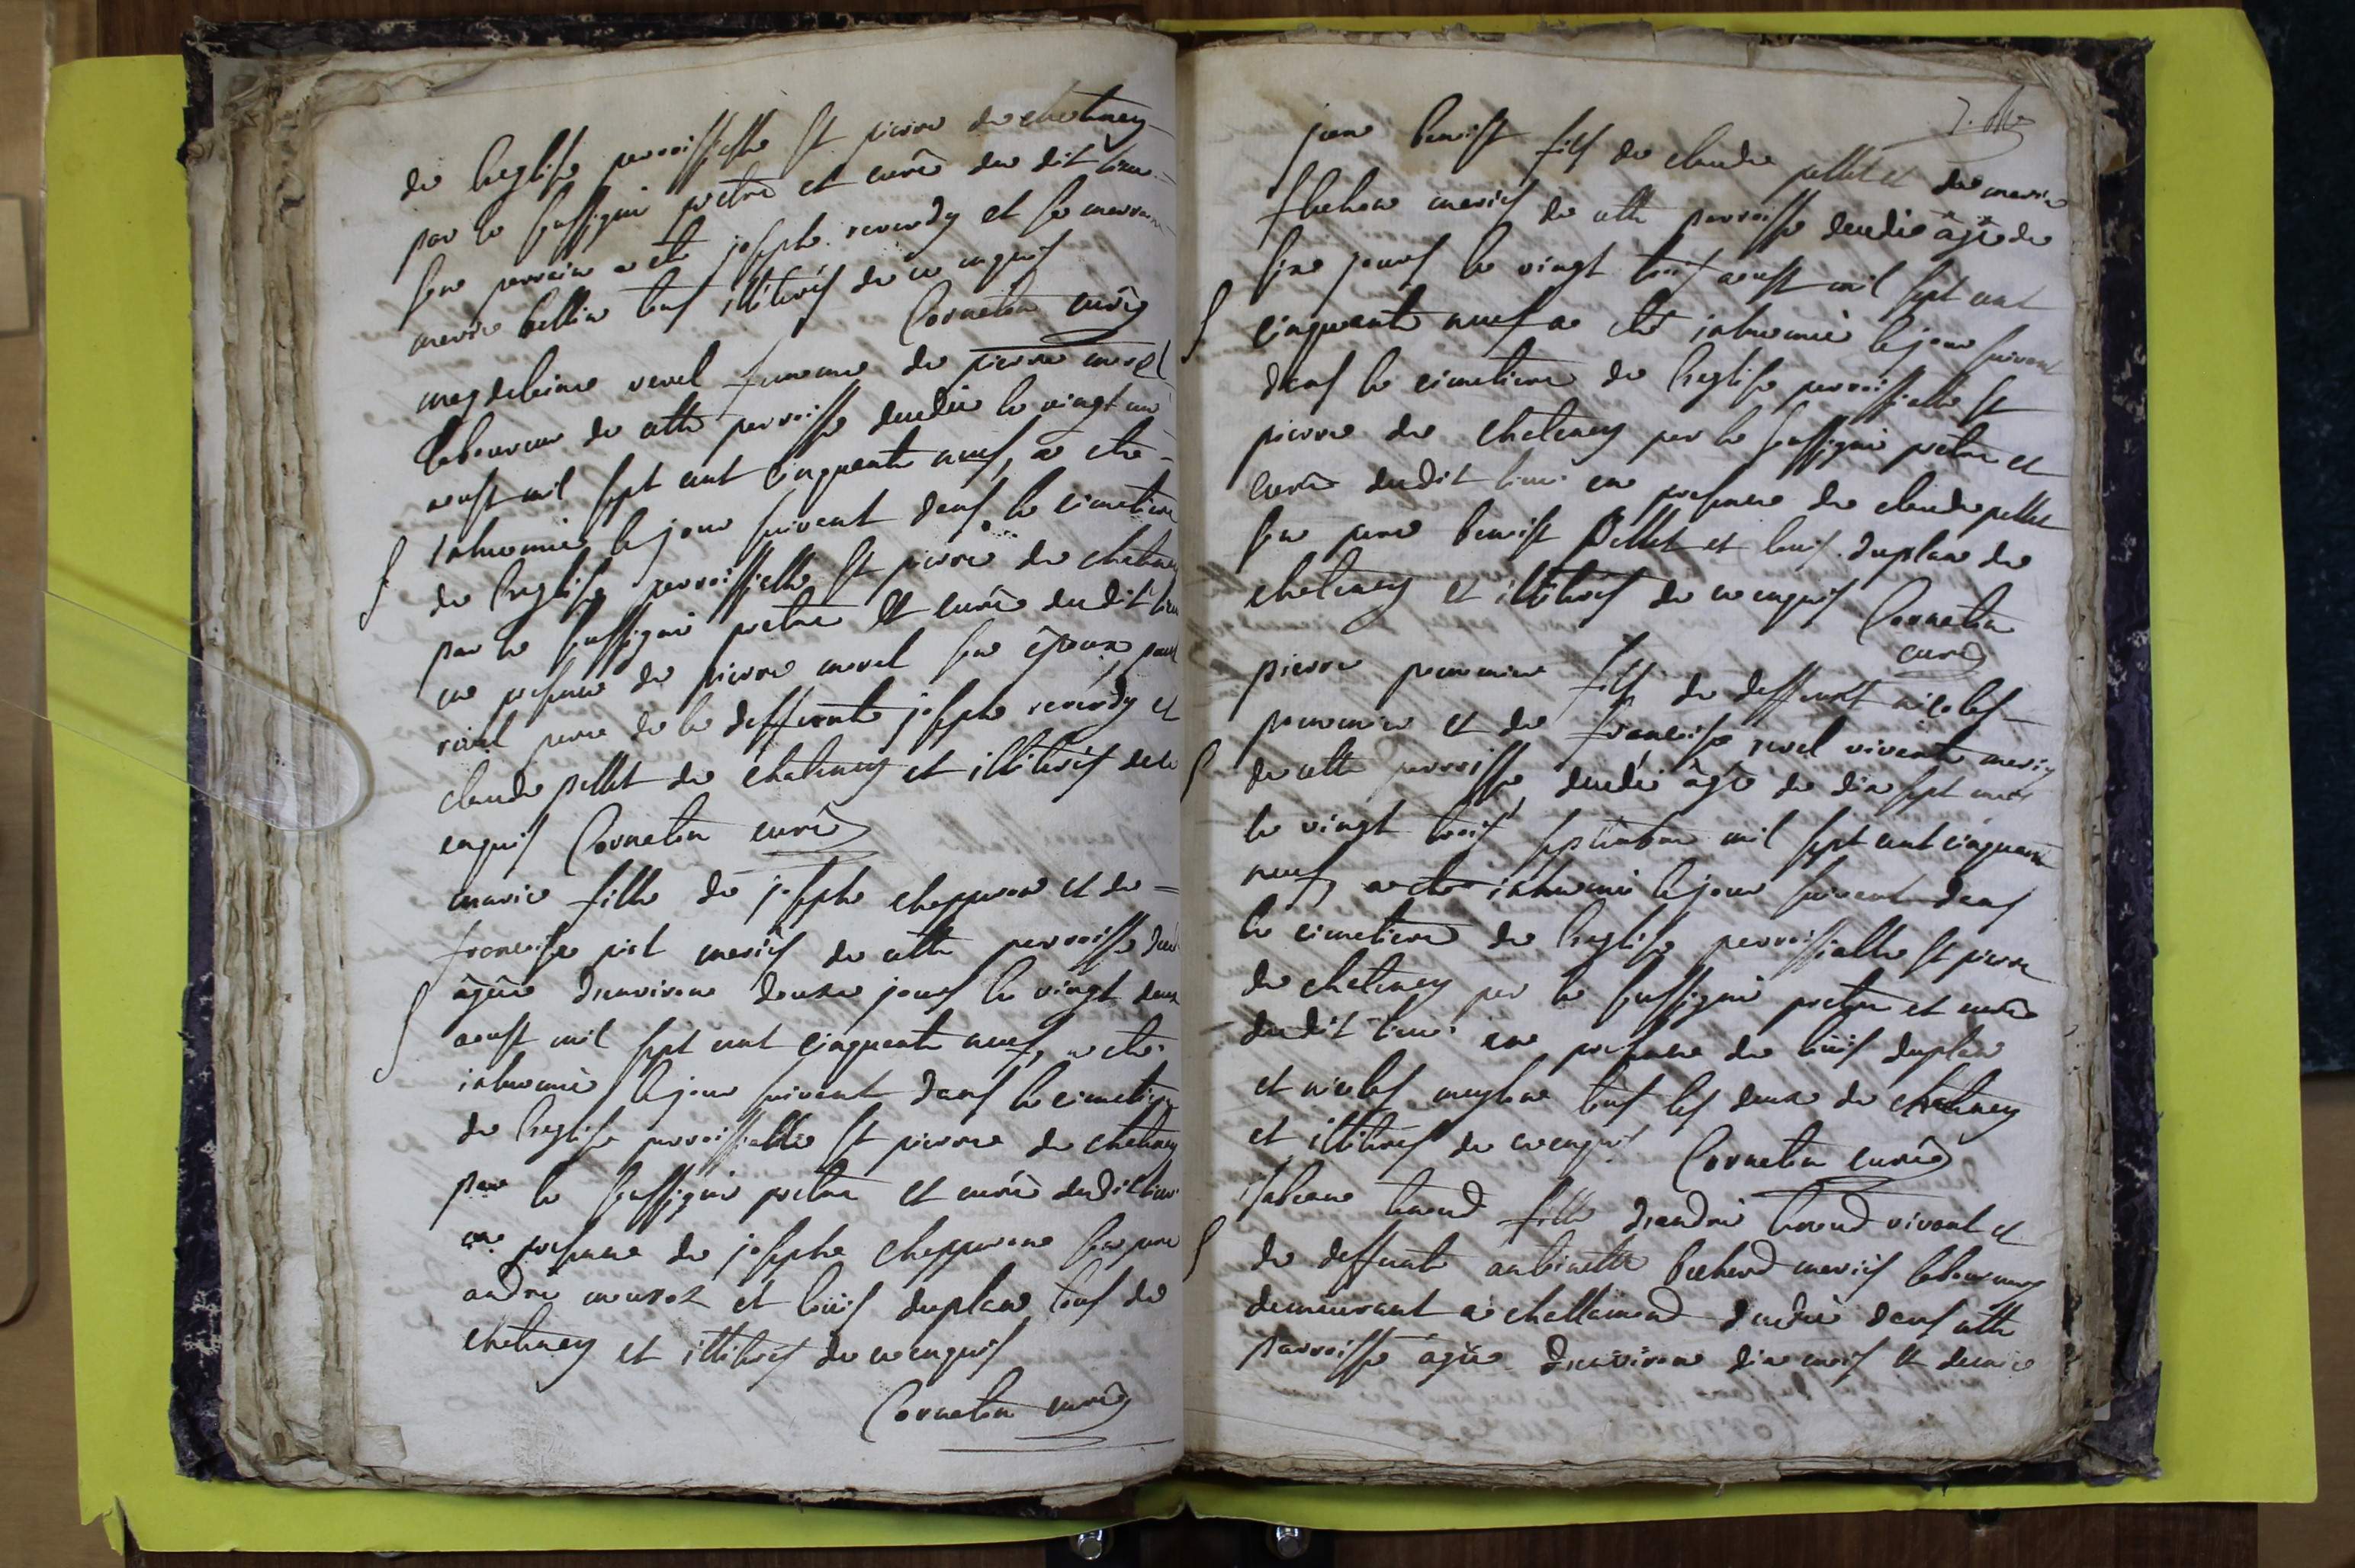 de l'eglise parroissialle St pierre de chatenay
par le soussigné prêtre et curé du dit lieu
son parrain a eté josephe reverdy et sa marraine
marie bellin tous illiterés de ce enquis
Corneton curé
magdelaine revel femme de pierre morel
laboureur de cette parroisse decedée le vingt un
aoust mil sept cent cinquante neuf, a eté
inhumée le jour suivant dans le cimetiere
de l'eglise parroissialle St pierre de chatenay
par le soussigné prêtre et curé dudit lieu
en presence de pierre morel son époux,
revel pere de la deffunte josephe reverdy et
claude pellet de chatenay et illiterés de ce
enquis Corneton curé
marie fille de josephe chappuson et de
françoise mariés de cette parroisse
âgée d'environ douze jours le vingt deux
aoust mil sept cent cinquante neuf, a eté
inhumée le jour suivant dans le cimetiere
de l'eglise parroissialle St pierre de chatenay
par le soussigné prêtre et curé dudit lieu
en presence de josephe chappuson son pere
andré et loüis duplan tous de
chatenay et illiterés de ce enquis
Corneton curé
7.
jean benoist fils de claude pellet et de marie
mariés de cette parroisse decedé âgé de
six jours le vingt trois aoust mil sept cent
cinquante neuf a eté inhumé le jour suivant
dans le cimetiere de l'eglise parroissialle St
pierre de chatenay par le soussigné prêtre et
curé dudit lieu en presence de claude pellet
son pere benoist Pellet et loüis duplan de
chatenay et illiterés de ce enquis Corneton
curé
pierre fils de deffunt nicolas
et de françoise revel vivante mariés
de cette parroisse decedé âgé de dix sept
le vingt trois septembre mil sept cent cinquante
neuf, a eté inhumé le jour suivant dans
le cimetiere de l'eglise parroissialle St pierre
de chatenay par le soussigné prêtre et curé
dudit lieu en presence de loüis duplan
et nicolas tous les deux de chatenay
et illiterés de ce enquis Corneton curé
fille d'andré vivant et
de deffunte mariés laboureurs
demeurant a challamond decedée dans cette
parroisse agée d'environ dix mois et demie